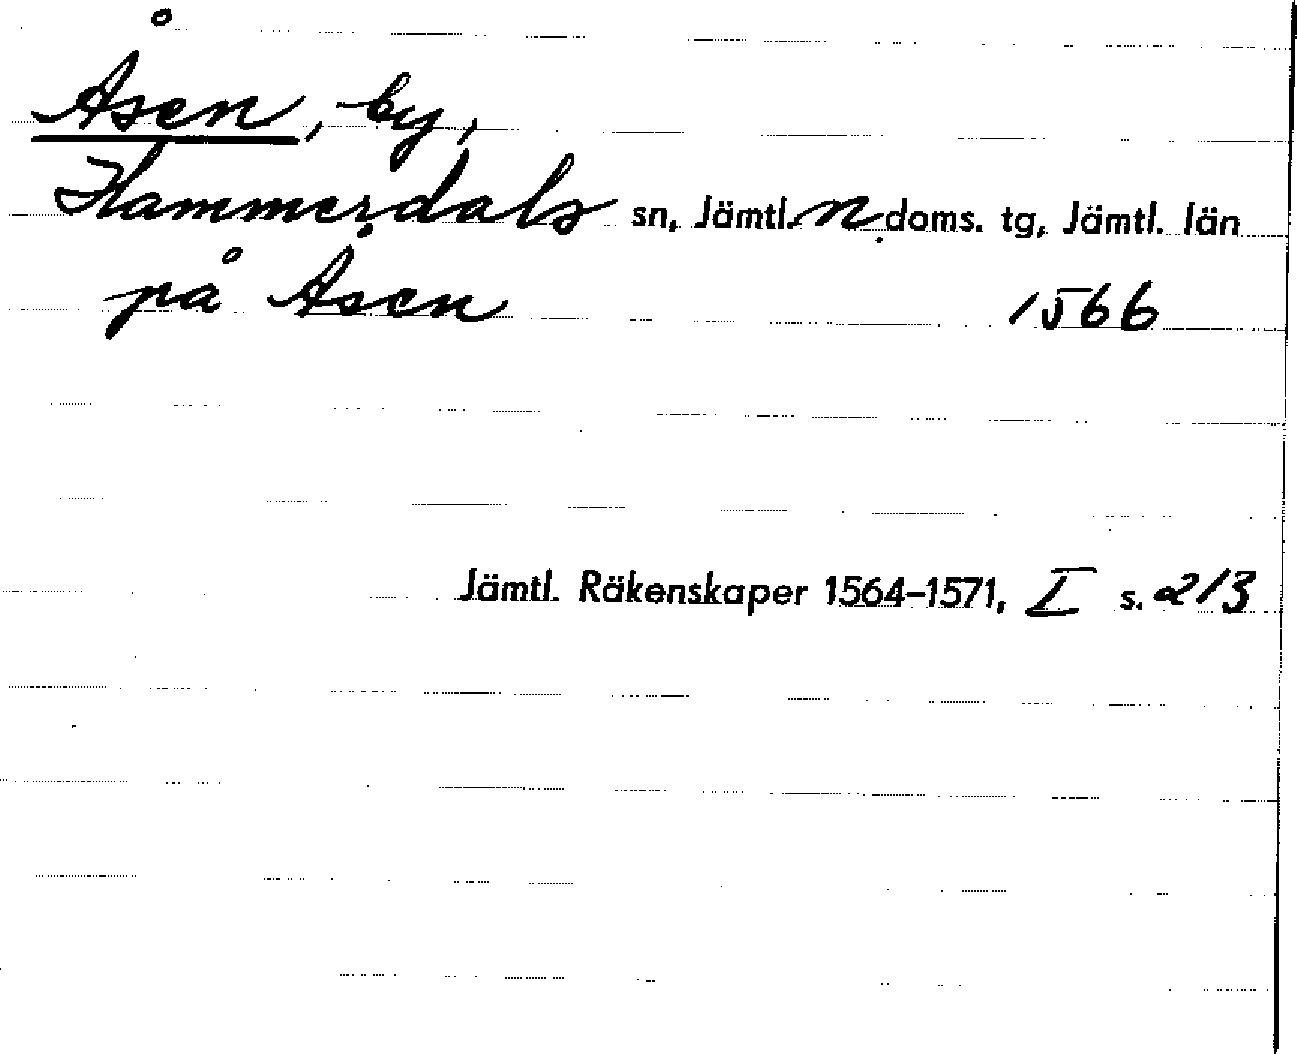 Åsen, by,
Hammerdals sn, Jämtl. n doms. tg, Jämtl. län
på Åsen 1566
Jämtl. Räkenskaper 1564-1571, I s. 213